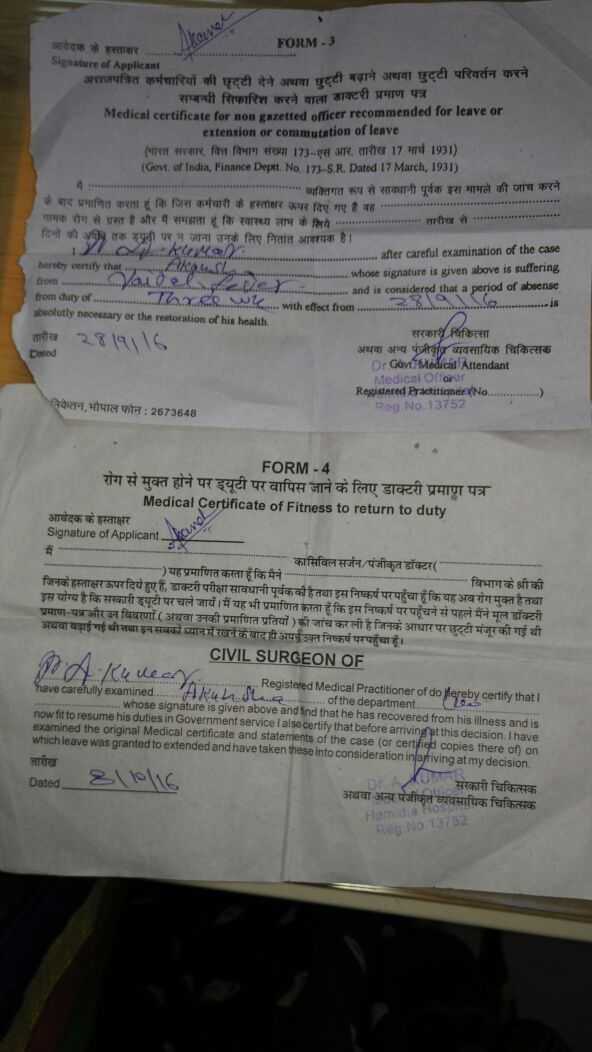 आवेदक के हस्ताक्षर
FORM - 3
Signature of Applicant
अराजपत्रित कर्मचारियों की छूट्टी देने अथवा छुट्टी बढ़ाने अथवा छुट्टी परिवर्तन करने
सम्बन्धी सिफारिश करने वाला डाक्टरी प्रमाण पत्र
Medical certificate for non gazetted officer recommended for leave or
extension or commutation of leave
(भारत सरकार, वित्त विभाग संख्या 173-एस आर. तारीख 17 मार्च 1931)
(Govt. of India, Finance Deptt. No. 173-S.R. Dated 17 March, 1931)
मैं व्यक्तिगत रूप से सावधानी पूर्वक इस मामले की जांच करने
के बाद प्रमाणित करता हूं कि जिस कर्मचारी के हस्ताक्षर ऊपर दिए गए हैं वह
नामक रोग से ग्रस्त है और मैं समझता हूं कि स्वास्थ्य लाभ के लिये तारीख से
दिनों की अवधि तक ड्यूटी पर न जाना उनके लिए नितांत आवश्यक है।
I Kumar after careful examination of the case
hereby certify that Akansha whose signature is given above is suffering
from and is considered that a period of absence
from duty of Three with effect from 28/9/16 is
absolutely necessary or the restoration of his health.
तारीख 28/9/16
Dated
सरकारी चिकित्सा
अथवा अन्य पंजीकृत व्यवसायिक चिकित्सक
Govt. Medical Attendant
or
Medical Officer
Registered Practitioner (No.)
Reg.No.13752
निकेतन, भोपाल फोन : 2673648
FORM - 4
रोग से मुक्त होने पर ड्यूटी पर वापिस जाने के लिए डाक्टरी प्रमाण पत्र
Medical Certificate of Fitness to return to duty
आवेदक के हस्ताक्षर
Signature of Applicant
मैं का सिविल सर्जन/पंजीकृत डॉक्टर(
) यह प्रमाणित करता हूँ कि मैंने विभाग के श्री की
जिनके हस्ताक्षर ऊपर दिये हुए हैं, डाक्टरी परीक्षा सावधानी पूर्वक की है तथा इस निष्कर्ष पर पहुँचा हूँ कि यह अब रोग मुक्त है तथा
इस योग्य है कि सरकारी ड्यूटी पर चले जायें। मैं यह भी प्रमाणित करता हूँ कि इस निष्कर्ष पर पहुँचने से पहले मैंने मूल डॉक्टरी
प्रमाण-पत्र और उन विवरणों (अथवा उनकी प्रमाणित प्रतियों) की जांच कर ली है जिनके आधार पर छुट्टी मंजूर की गई थी
अथवा बढ़ाई गई थी तथा इन सबको ध्यान में रखने के बाद ही अपने उक्त निष्कर्ष पर पहुँचा हूँ।
CIVIL SURGEON OF
A. Kumar Registered Medical Practitioner of do hereby certify that I
have carefully examined Akansha of the department
whose signature is given above and find that he has recovered from his illness and is
now fit to resume his duties in Government service I also certify that before arriving at this decision. I have
examined the original Medical certificate and statements of the case (or certified copies there of) on
which leave was granted to extended and have taken these into consideration in arriving at my decision.
तारीख
Dated 8/10/16
Dr. A. KUMAR
सरकारी चिकित्सक
अथवा अन्य पंजीकृत व्यवसायिक चिकित्सक
Hamidia Hospital
Reg.No.13752